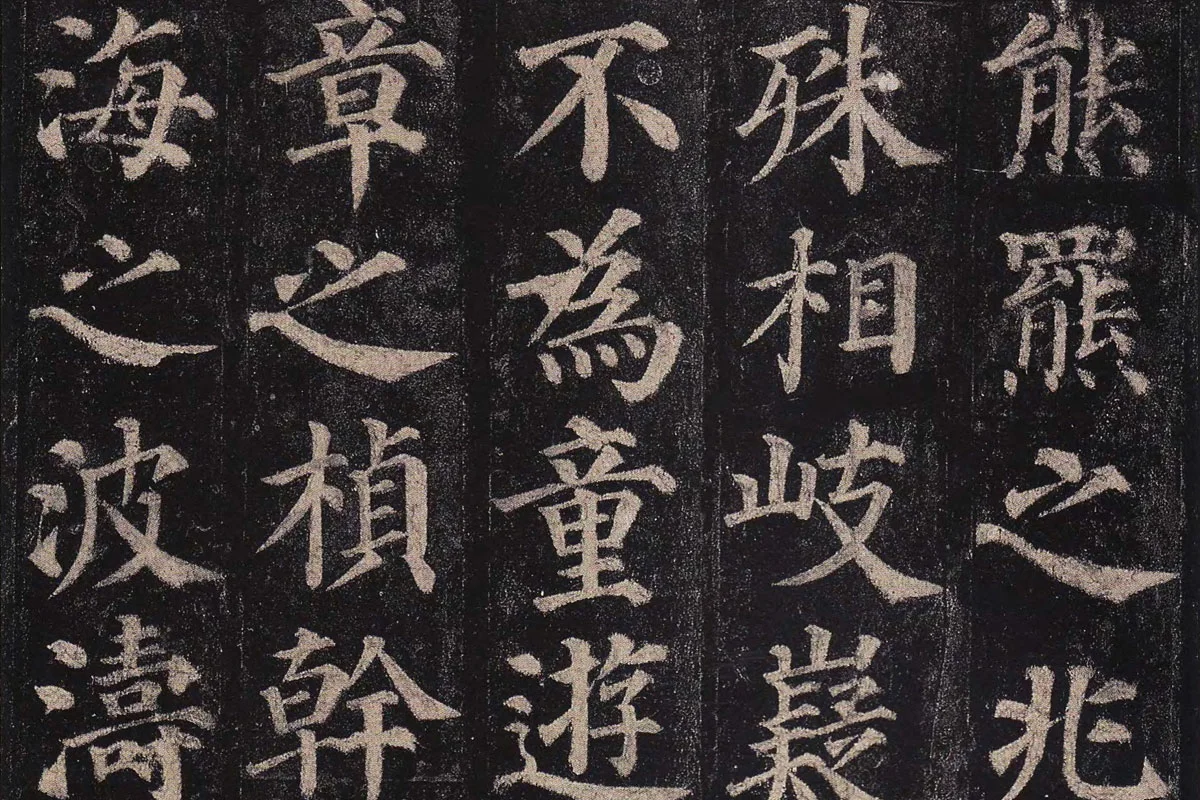 熊羆之兆
殊相岐嶷
不為童遊
章之楨幹
海之波濤